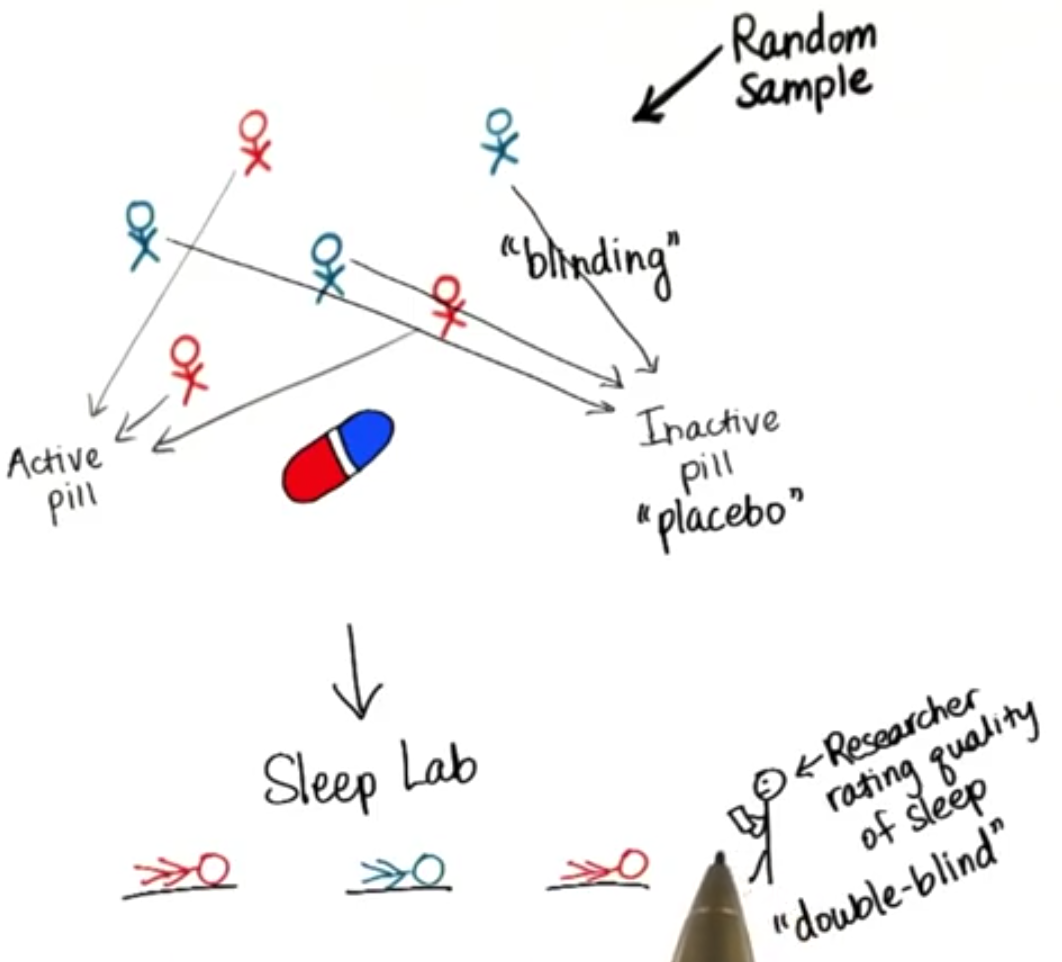 Random
Sample
"blinding"
Active
pill
Inactive
pill
"placebo"
Sleep Lab
←Researcher
rating quality
of sleep
"double-blind"